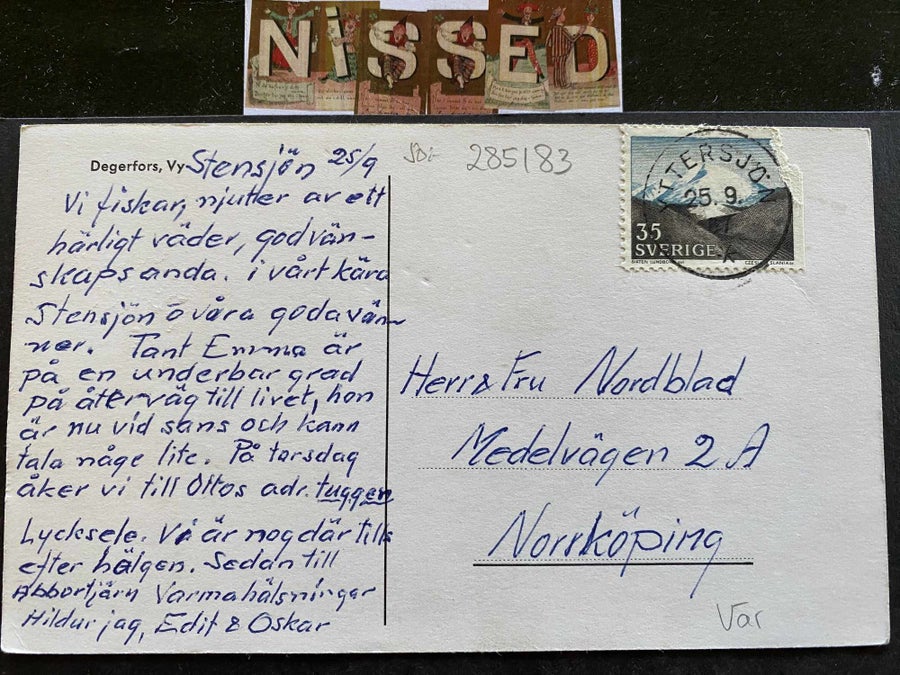 NISSED
Degerfors, Vy
Stensjön 25/9
Vi fiskar, njutter av ett
härligt väder, godvän-
skapsanda. i vårt kära
Stensjön o våra godavän-
ner. Tant Emma är
på en underbar grad
på återväg till livet, hon
är nu vid sans och kann
tala någe lite. På torsdag
åker vi till Ottos adr. tuggen
Lycksele. Vi är nog där tills
efter hälgen. Sedan till
Abbortjärn Varmahälsningar
Hildur jag, Edit & Oskar
285183
TTERSJÖN
25. 9.
35
SVERIGE
Herr & Fru Nordblad
Medelvägen 2 A
Norrköping
Var